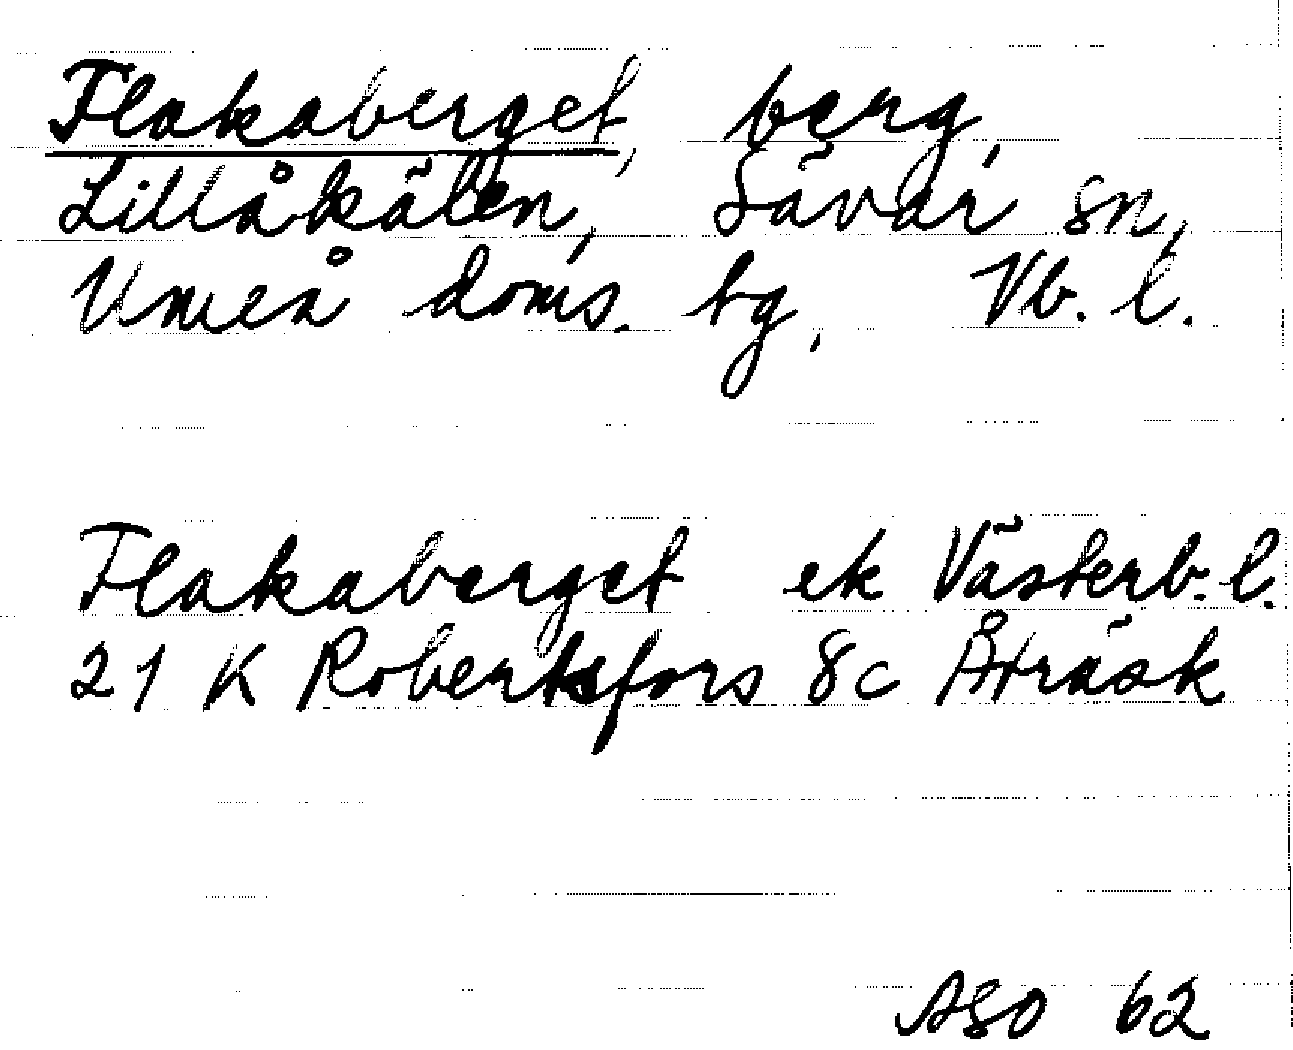 Flakaberget, berg,
Lillåkälen, Sävar sn,
Umeå doms. tg, Vb. l.
Flakaberget ek Västerb. l.
21 K Robertsfors 8c Åträsk
ASO 62